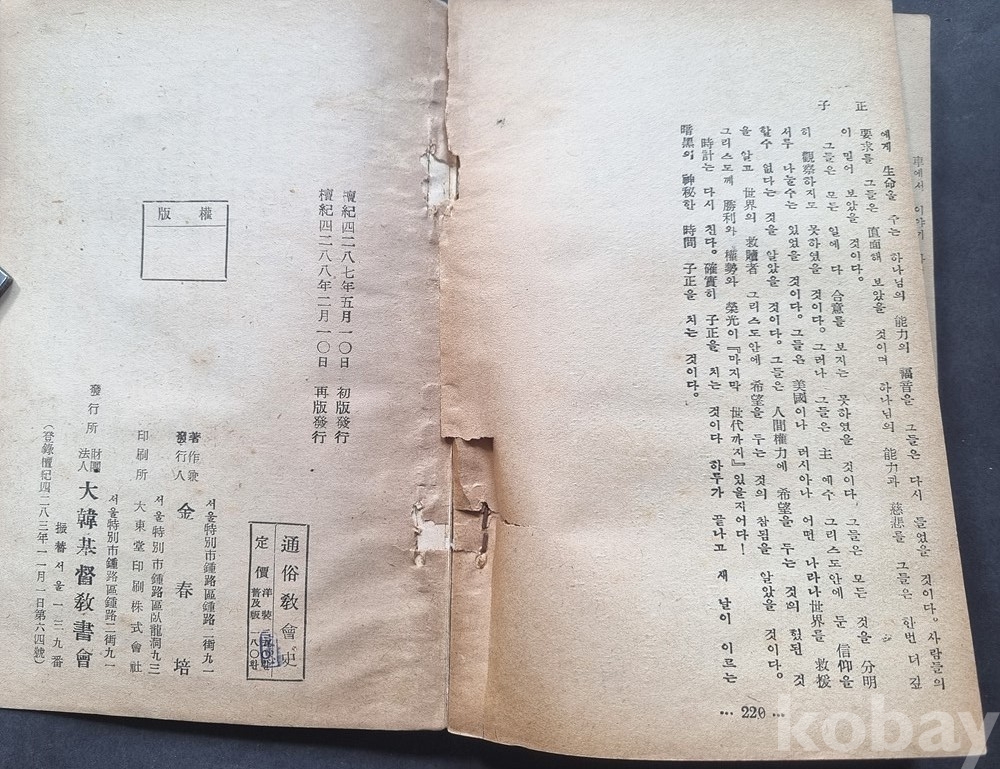 正 子
에게 生命을 주는 하나님의 能力의 福音을 그들은 다시 들었을 것이다. 사람들의
要求를 그들은 直面해 보았을 것이며 하나님의 能力과 慈悲를 그들은 한번 더 깊
이 믿어 보았을 것이다.
그들은 모든 일에 다 合意를 보지는 못하였을 것이다. 그들은 모든 것을 分明
히 觀察하지도 못하였을 것이다. 그러나 그들은 主 예수 그리스도안에 둔 信仰을
서루 나눌수는 있었을 것이다. 그들은 美國이나 러시아나 어떤 나라나 世界를 救援
할수 없다는 것을 알았을 것이다. 그들은 人間權力에 希望을 두는 것의 헛된 것
을 알고 世界의 救贖者 그리스도안에 希望을 두는 것의 참됨을 알았을 것이다.
그리스도께 勝利와 權勢와 榮光이 『마지막 世代까지』 있을지어다!
時計는 다시 친다. 確實히 子正을 치는 것이다 하루가 끝나고 새 날이 이르는
暗黑의 神秘한 時間 子正을 치는 것이다.
… 220 …
檀紀四二八七年五月一〇日 初版發行
檀紀四二八八年二月一〇日 再版發行
版權
通俗敎會史
定價 洋裝
普及版 一八〇환
서울特別市鍾路區鍾路二街九一
著作兼
發行人 金春培
서울特別市鍾路區臥龍洞九三
印刷所 大東堂印刷株式會社
서울特別市鍾路區鍾路二街九一
發行所 財團法人 大韓基督敎書會
振替서울一三九番
(登錄檀紀四二八三年一一月一日第六四號)
kobay